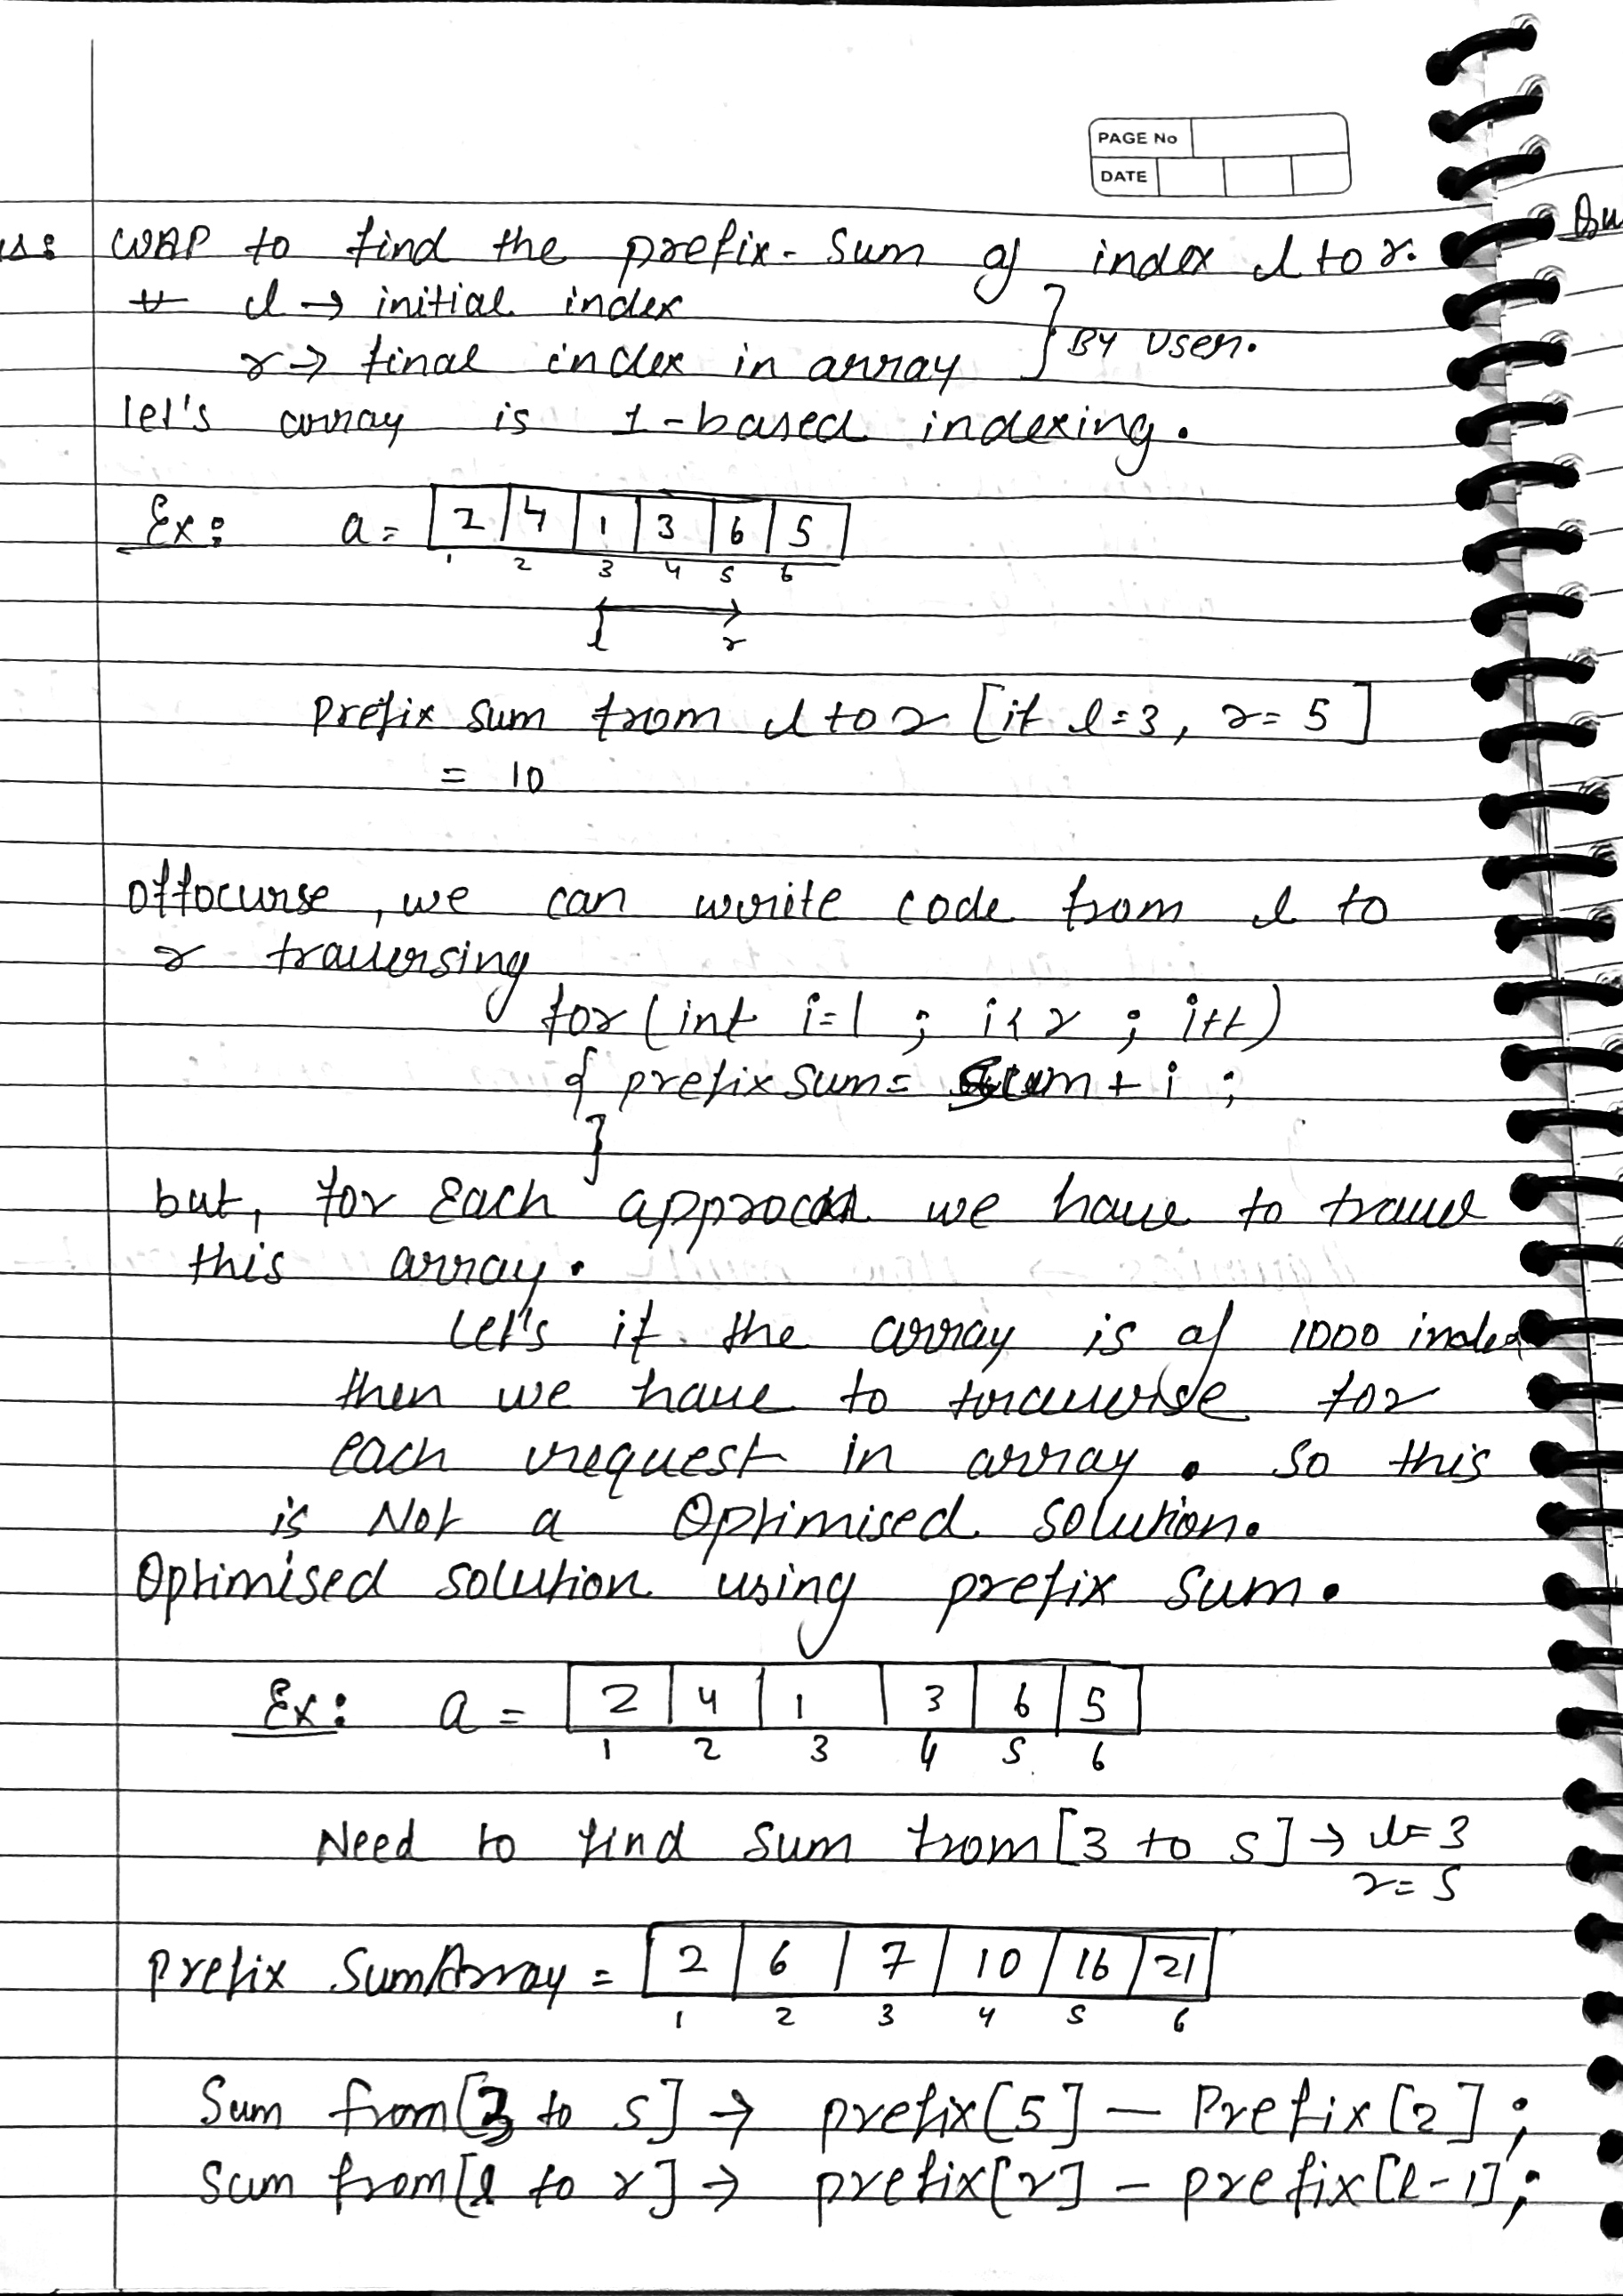 PAGE No
DATE
WAP to find the prefix-sum of index l to r.
l → initial index
r → final index in array } By user.
let's array is 1-based indexing.
Ex: a = 2 4 1 3 6 5
1 2 3 4 5 6
l r
prefix sum from l to r [if l=3, r=5]
= 10
offocurse, we can write code from l to
r traversing
for(int i=l ; i<r ; i++)
{ prefix sum = sum + i ;
}
but, for Each approach we have to travel
this array.
Let's if the array is of 1000 index
then we have to for
each request in array. So this
is Not a Optimised solution.
Optimised solution using prefix sum.
Ex: a = 2 4 1 3 6 5
1 2 3 4 5 6
Need to find sum from [3 to 5] → l=3
r=5
prefix SumArray = 2 6 7 10 16 21
1 2 3 4 5 6
Sum from [3 to 5] → prefix[5] - Prefix[2];
Sum from [l to r] → prefix[r] - prefix[l-1];